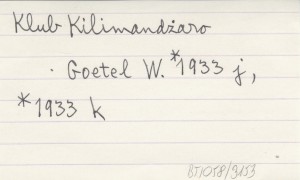 Klub Kilimandżaro
· Goetel W. *1933 j,
*1933 k
BJ1058/9153